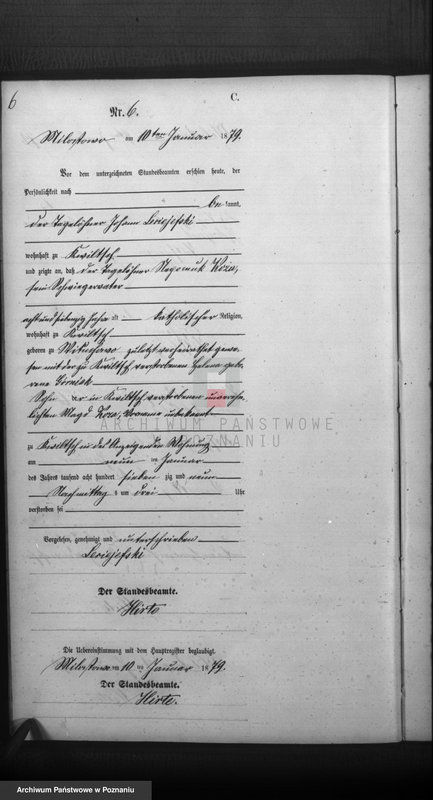 6
C.
Nr. 6.
Milostowo am 10ten Januar 1879.
Vor dem unterzeichneten Standesbeamten erschien heute, der
Persönlichkeit nach
be kannt,
der Tagelöhner Johann
wohnhaft zu Kwiltsch
und zeigte an, daß der Tagelöhner Nepomuk Koza,
sein Schwiegervater
acht und siebenzig Jahre alt katholischer Religion,
wohnhaft zu Kwiltsch
geboren zu zuletzt verheirathet gewe-
sen mit der zu Kwiltsch verstorbenen Helena gebo-
rene
Sohn der in Kwiltsch verstorbenen unverehe-
lichten Magd Koza, Vorname unbekannt
ARCHIWUM PAŃSTWOWE
W POZNANIU
zu Kwiltsch in des Anzeigenden Wohnung
am neun ten Januar
des Jahrs tausend acht hundert sieben zig und neun
Nachmittag s um drei Uhr
verstorben sei
Vorgelesen, genehmigt und unterschrieben
Der Standesbeamte.
Hirte
Die Uebereinstimmung mit dem Hauptregister beglaubigt.
Milostowo am 10 ten Januar 1879.
Der Standesbeamte.
Hirte.
Archiwum Państwowe w Poznaniu